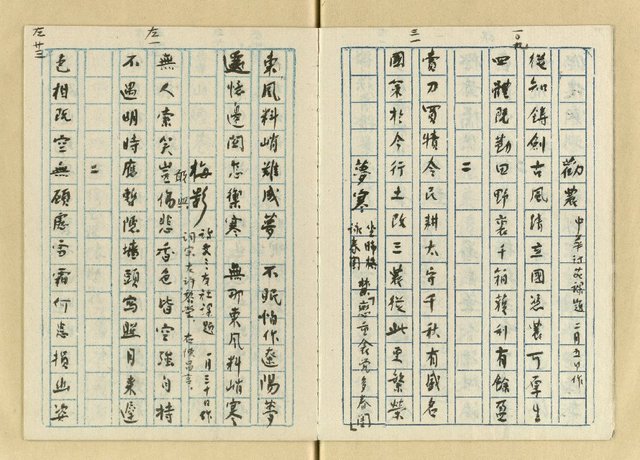 一〇九
勸農 中華訂莢課題 二月五日作
從知鑄劍古風清立國憑農可厚生
四體既勤田野裏千箱穫利有餘盈
二
賣刀買犢令民耕太守千秋有盛名
國策於今行土改三農從此更繁榮
三一
夢寒
詠春閨
東風料峭難成夢 不眠怕作遼陽夢
還憶邊關怎禦寒 無那東風料峭寒
左一
梅影 社課題 一月三十日作
無人索笑豈傷悲香色皆空強自持
不遇明時應暫隱墻頭寫照月來遲
二
色相既空無顧慮雪霜何患損幽姿
左廿三